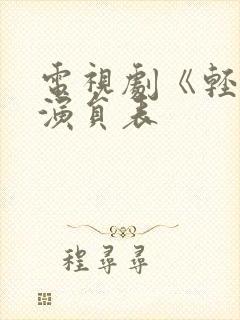 電視劇《輕
演員表
程尋尋